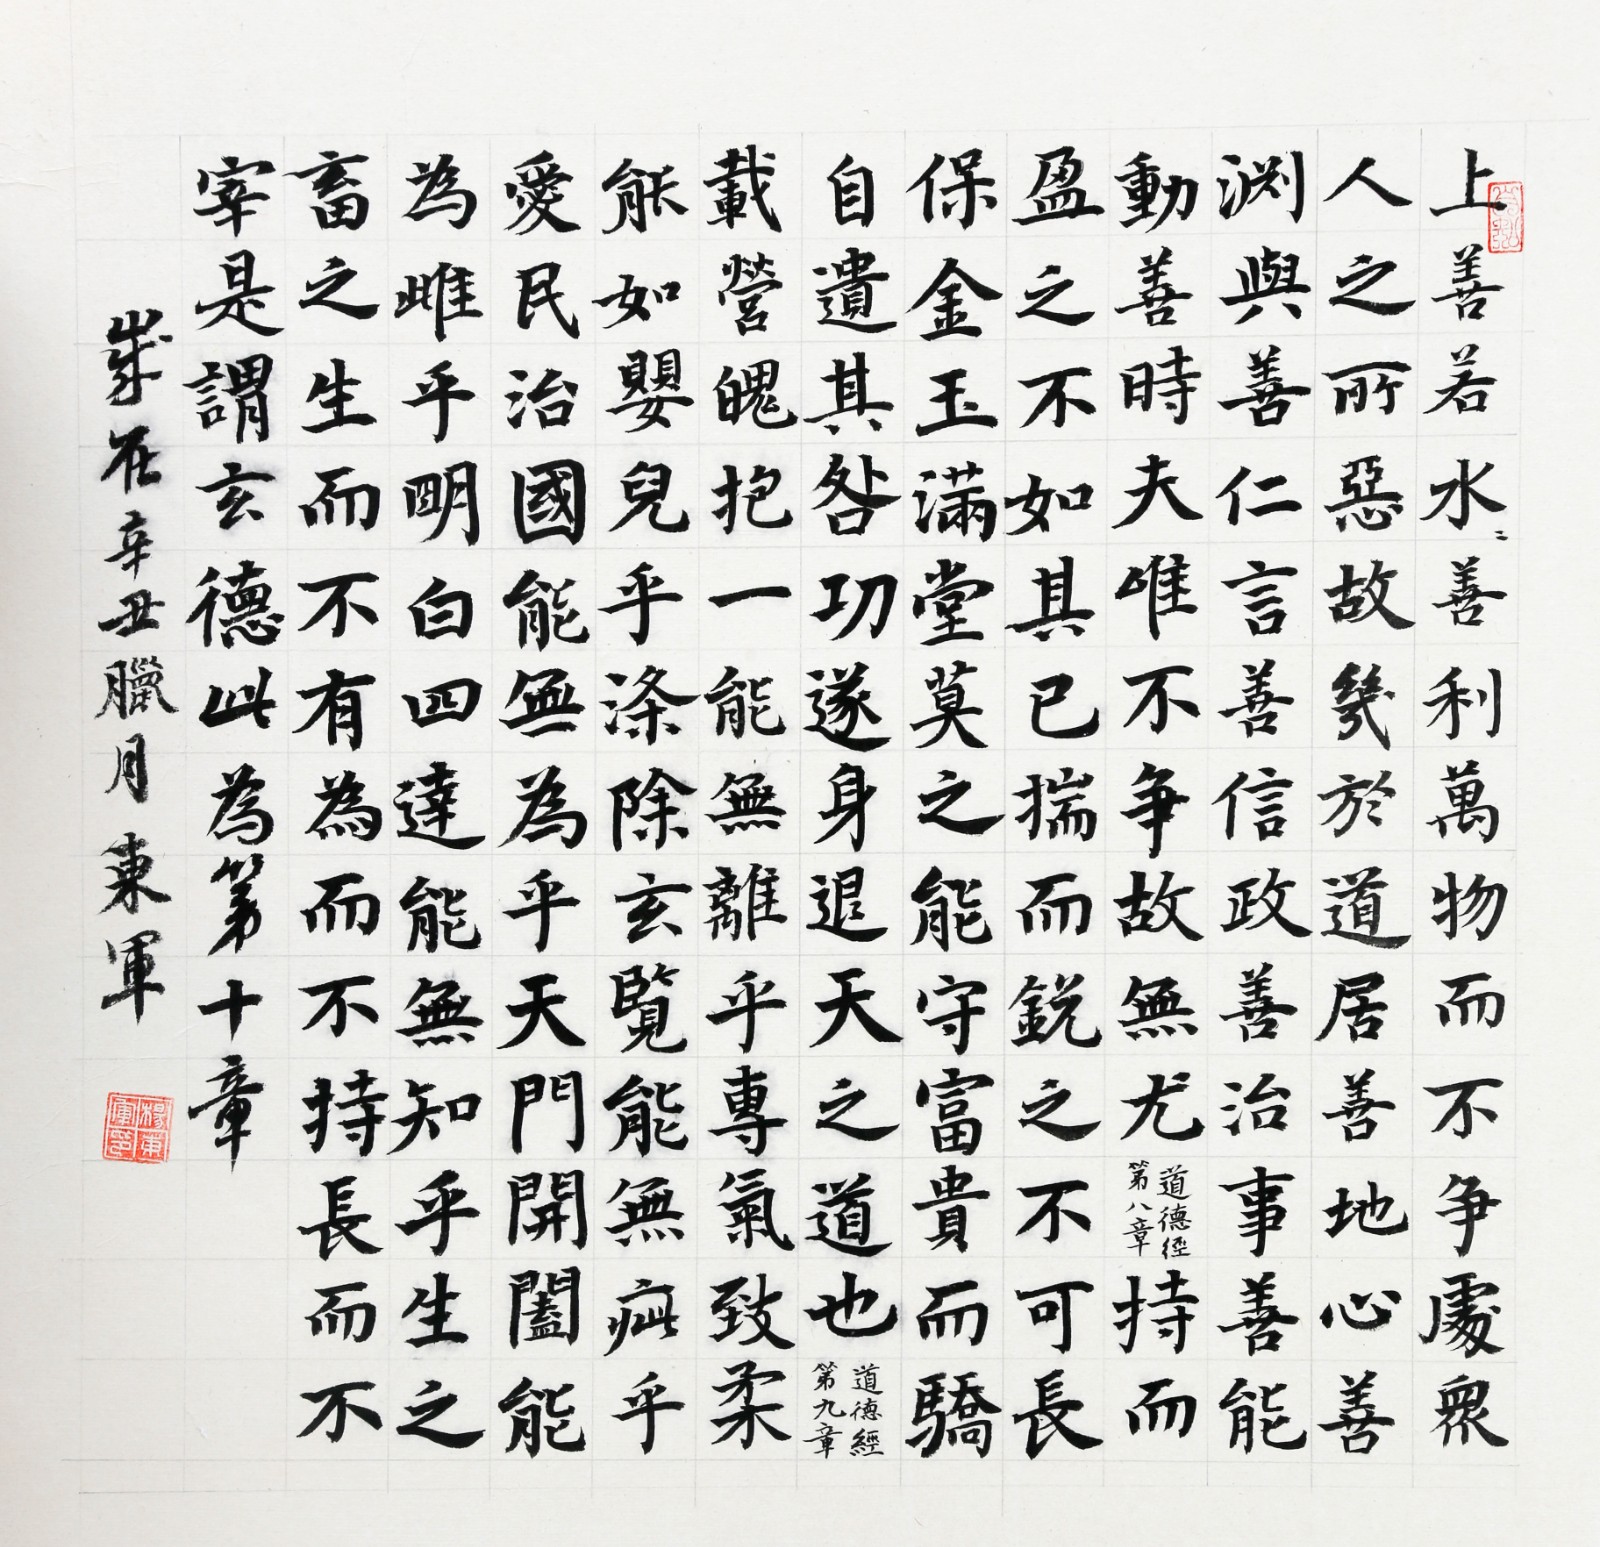 上善若水〻善利萬物而不争處衆
人之所惡故幾於道居善地心善
渊與善仁言善信政善治事善能
動善時夫唯不争故無尤道德經第八章持而
盈之不如其已揣而鋭之不可長
保金玉滿堂莫之能守富貴而驕
自遺其咎功遂身退天之道也道德經第九章
載營魄抱一能無離乎專氣致柔
能如嬰兒乎涤除玄覽能無疵乎
愛民治國能無為乎天門開闔能
為雌乎明白四達能無知乎生之
畜之生而不有為而不持長而不
宰是謂玄德此為第十章
歲在辛丑臘月東軍
楊東軍印